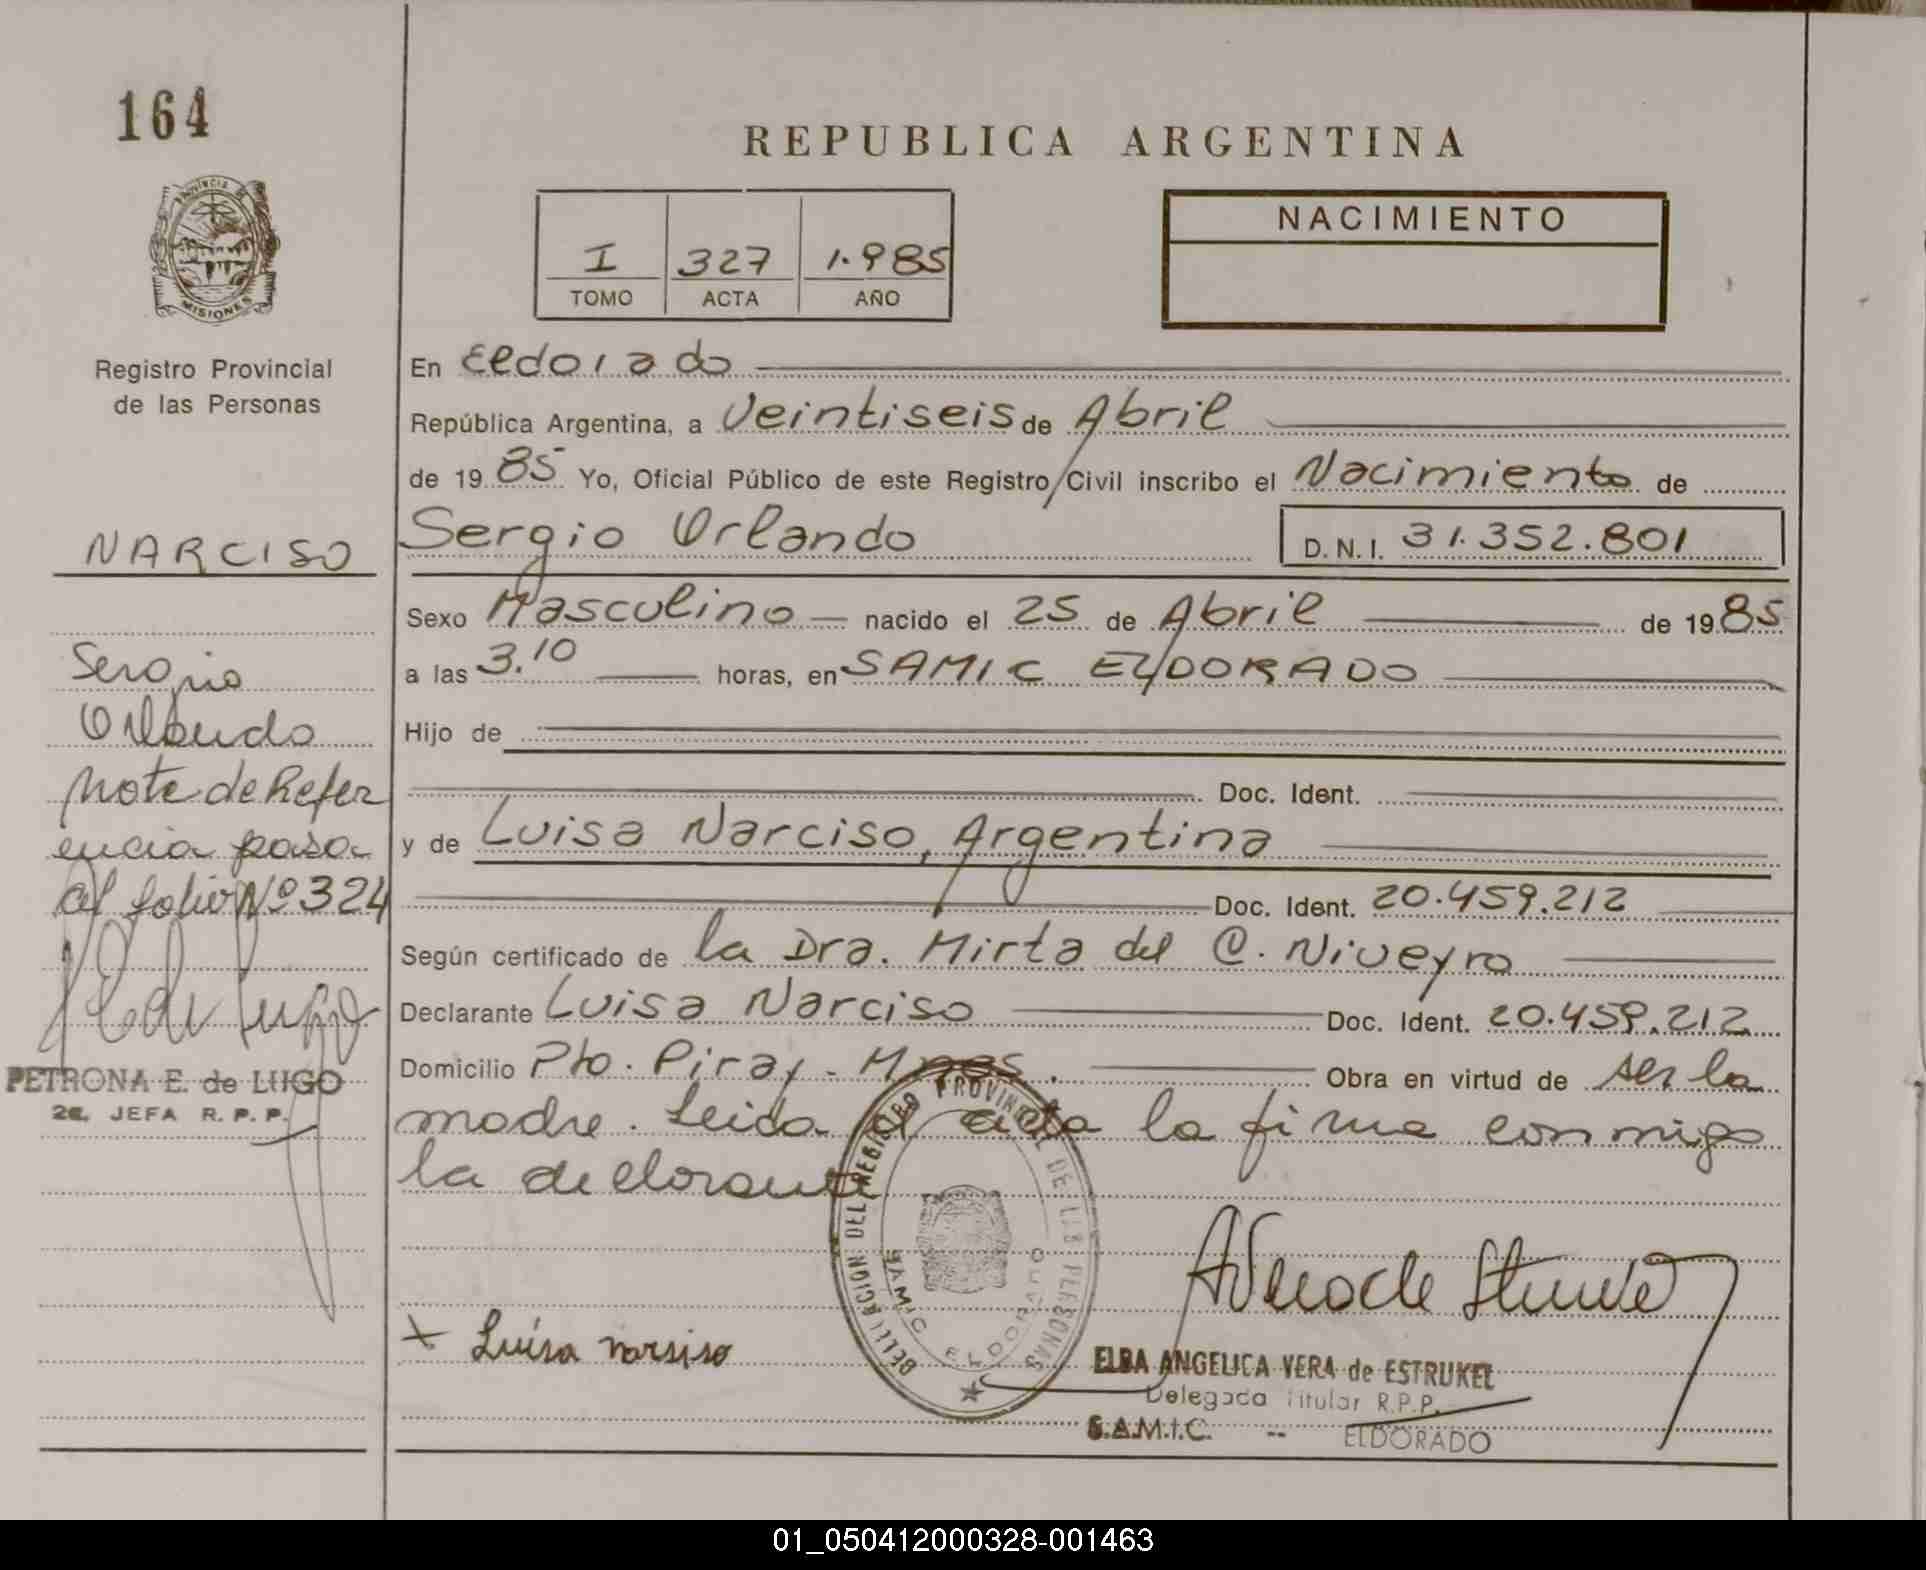 164
PROVINCIA DE
MISIONES
Registro Provincial
de las Personas
NARCISO
Sergio
Orlando
Nota de Refer
encia pasa
al folio Nº 324
PETRONA E. de LUGO
2a. JEFA R. P. P.
REPUBLICA ARGENTINA
I 327 1.985
TOMO ACTA AÑO
NACIMIENTO
En Eldorado
República Argentina, a Veintiseis de Abril
de 1985 Yo, Oficial Público de este Registro Civil inscribo el Nacimiento de
Sergio Orlando D.N.I. 31.352.801
Sexo Masculino nacido el 25 de Abril de 1985
a las 3.10 horas, en SAMIC ELDORADO
Hijo de
Doc. Ident.
y de Luisa Narciso, Argentina
Doc. Ident. 20.459.212
Según certificado de la Dra. Mirta del C. Niveyro
Declarante Luisa Narciso Doc. Ident. 20.459.212
Domicilio Pto. Piray - Mnes. Obra en virtud de ser la
madre. Leida el acta la firma conmigo
la declarante
DEL REGISTRO PROVINCIAL DE LAS PERSONAS
SAMIC ELDORADO
x Luisa narsiso
ELBA ANGELICA VERA de ESTRUKEL
Delegada Titular R.P.P.
S.A.M.I.C. -- ELDORADO
01_050412000328-001463